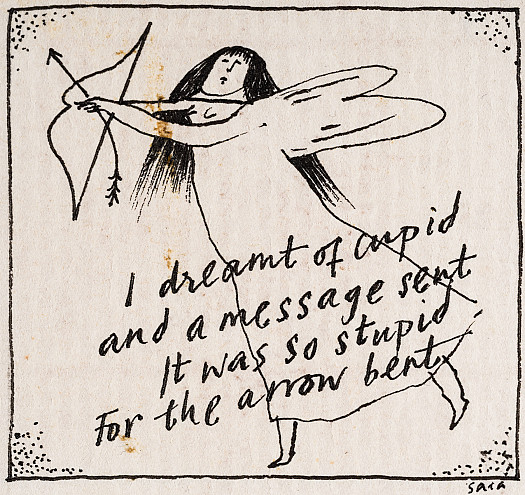 I dreamt of cupid
and a message sent
It was so stupid
For the arrow bent.
sara